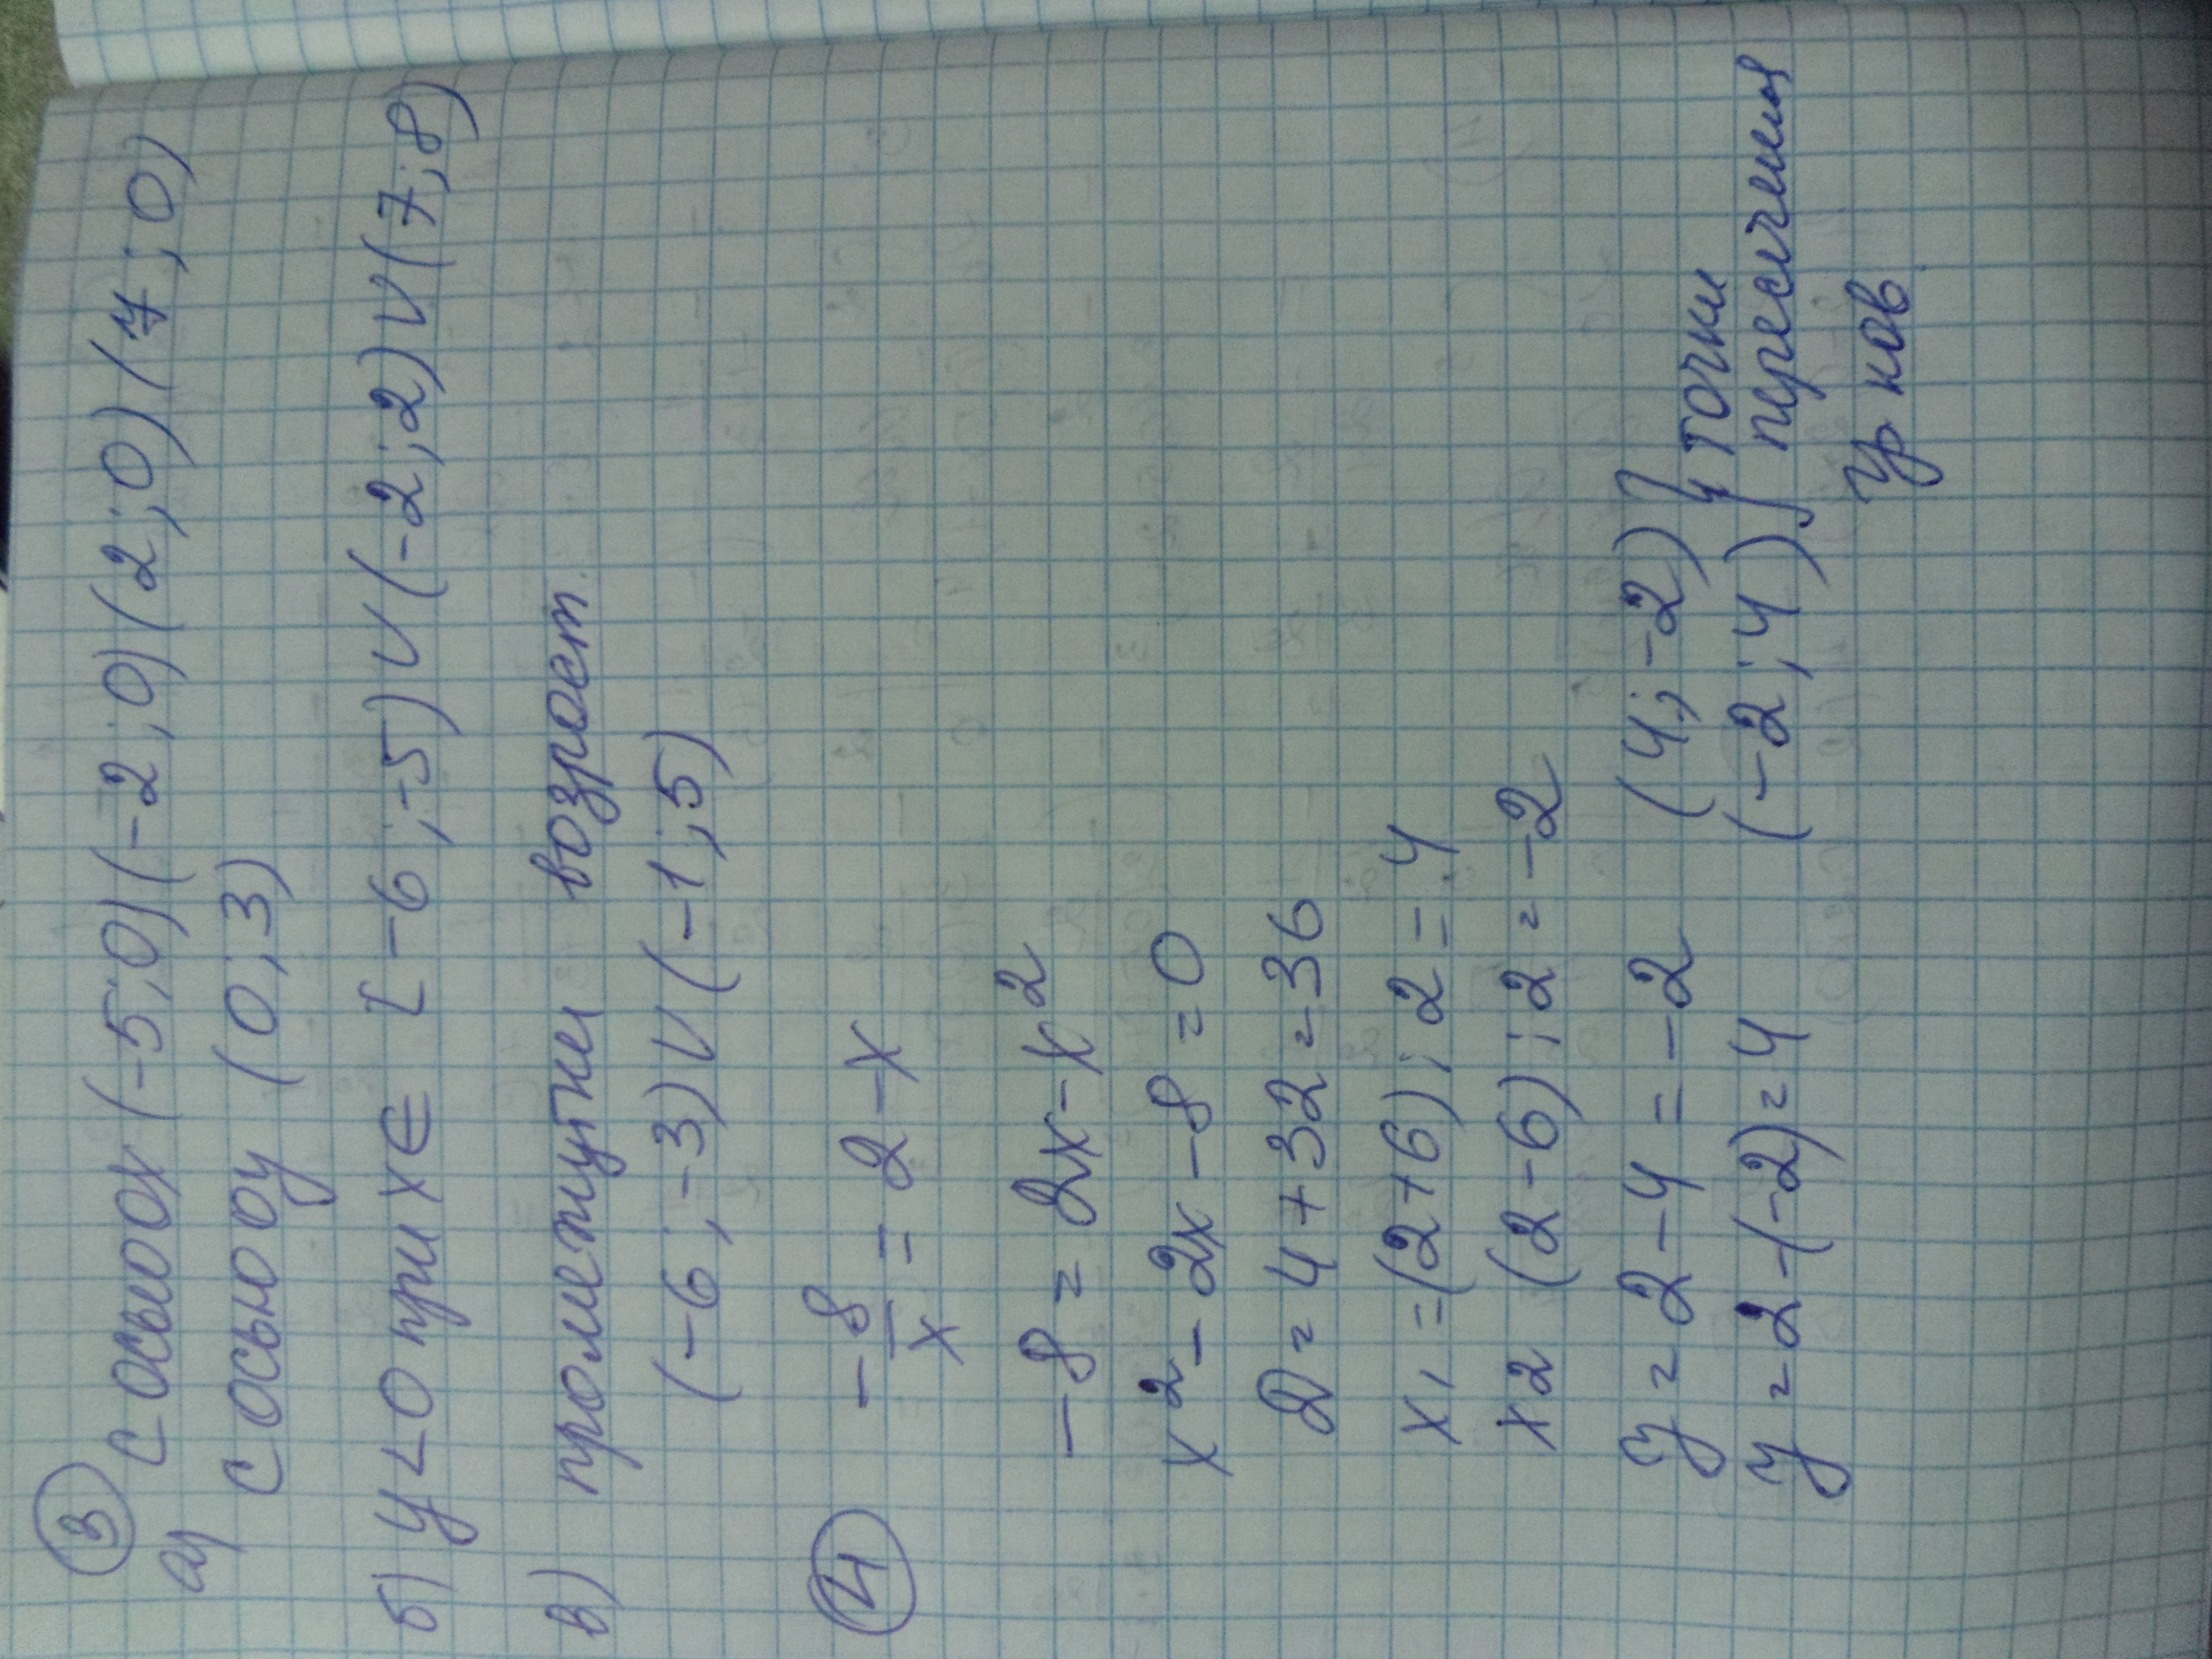 3 с осью ох (-5;0)(-2;0)(2;0)(7;0)
а) с осью оу (0;3)
б) y<0 при x∈ [-6;-5)∪(-2;2)∪(7;8)
в) промежутки возрост.
(-6;-3)∪(-1;5)
4 -8/x = 2-x
-8 = 2x-x²
x²-2x-8=0
D=4+32=36
x₁=(2+6):2=4
x2 (2-6):2=-2
y=2-4=-2 (4;-2)
y=2-(-2)=4 (-2;4) } точки
пересечения
гр ков